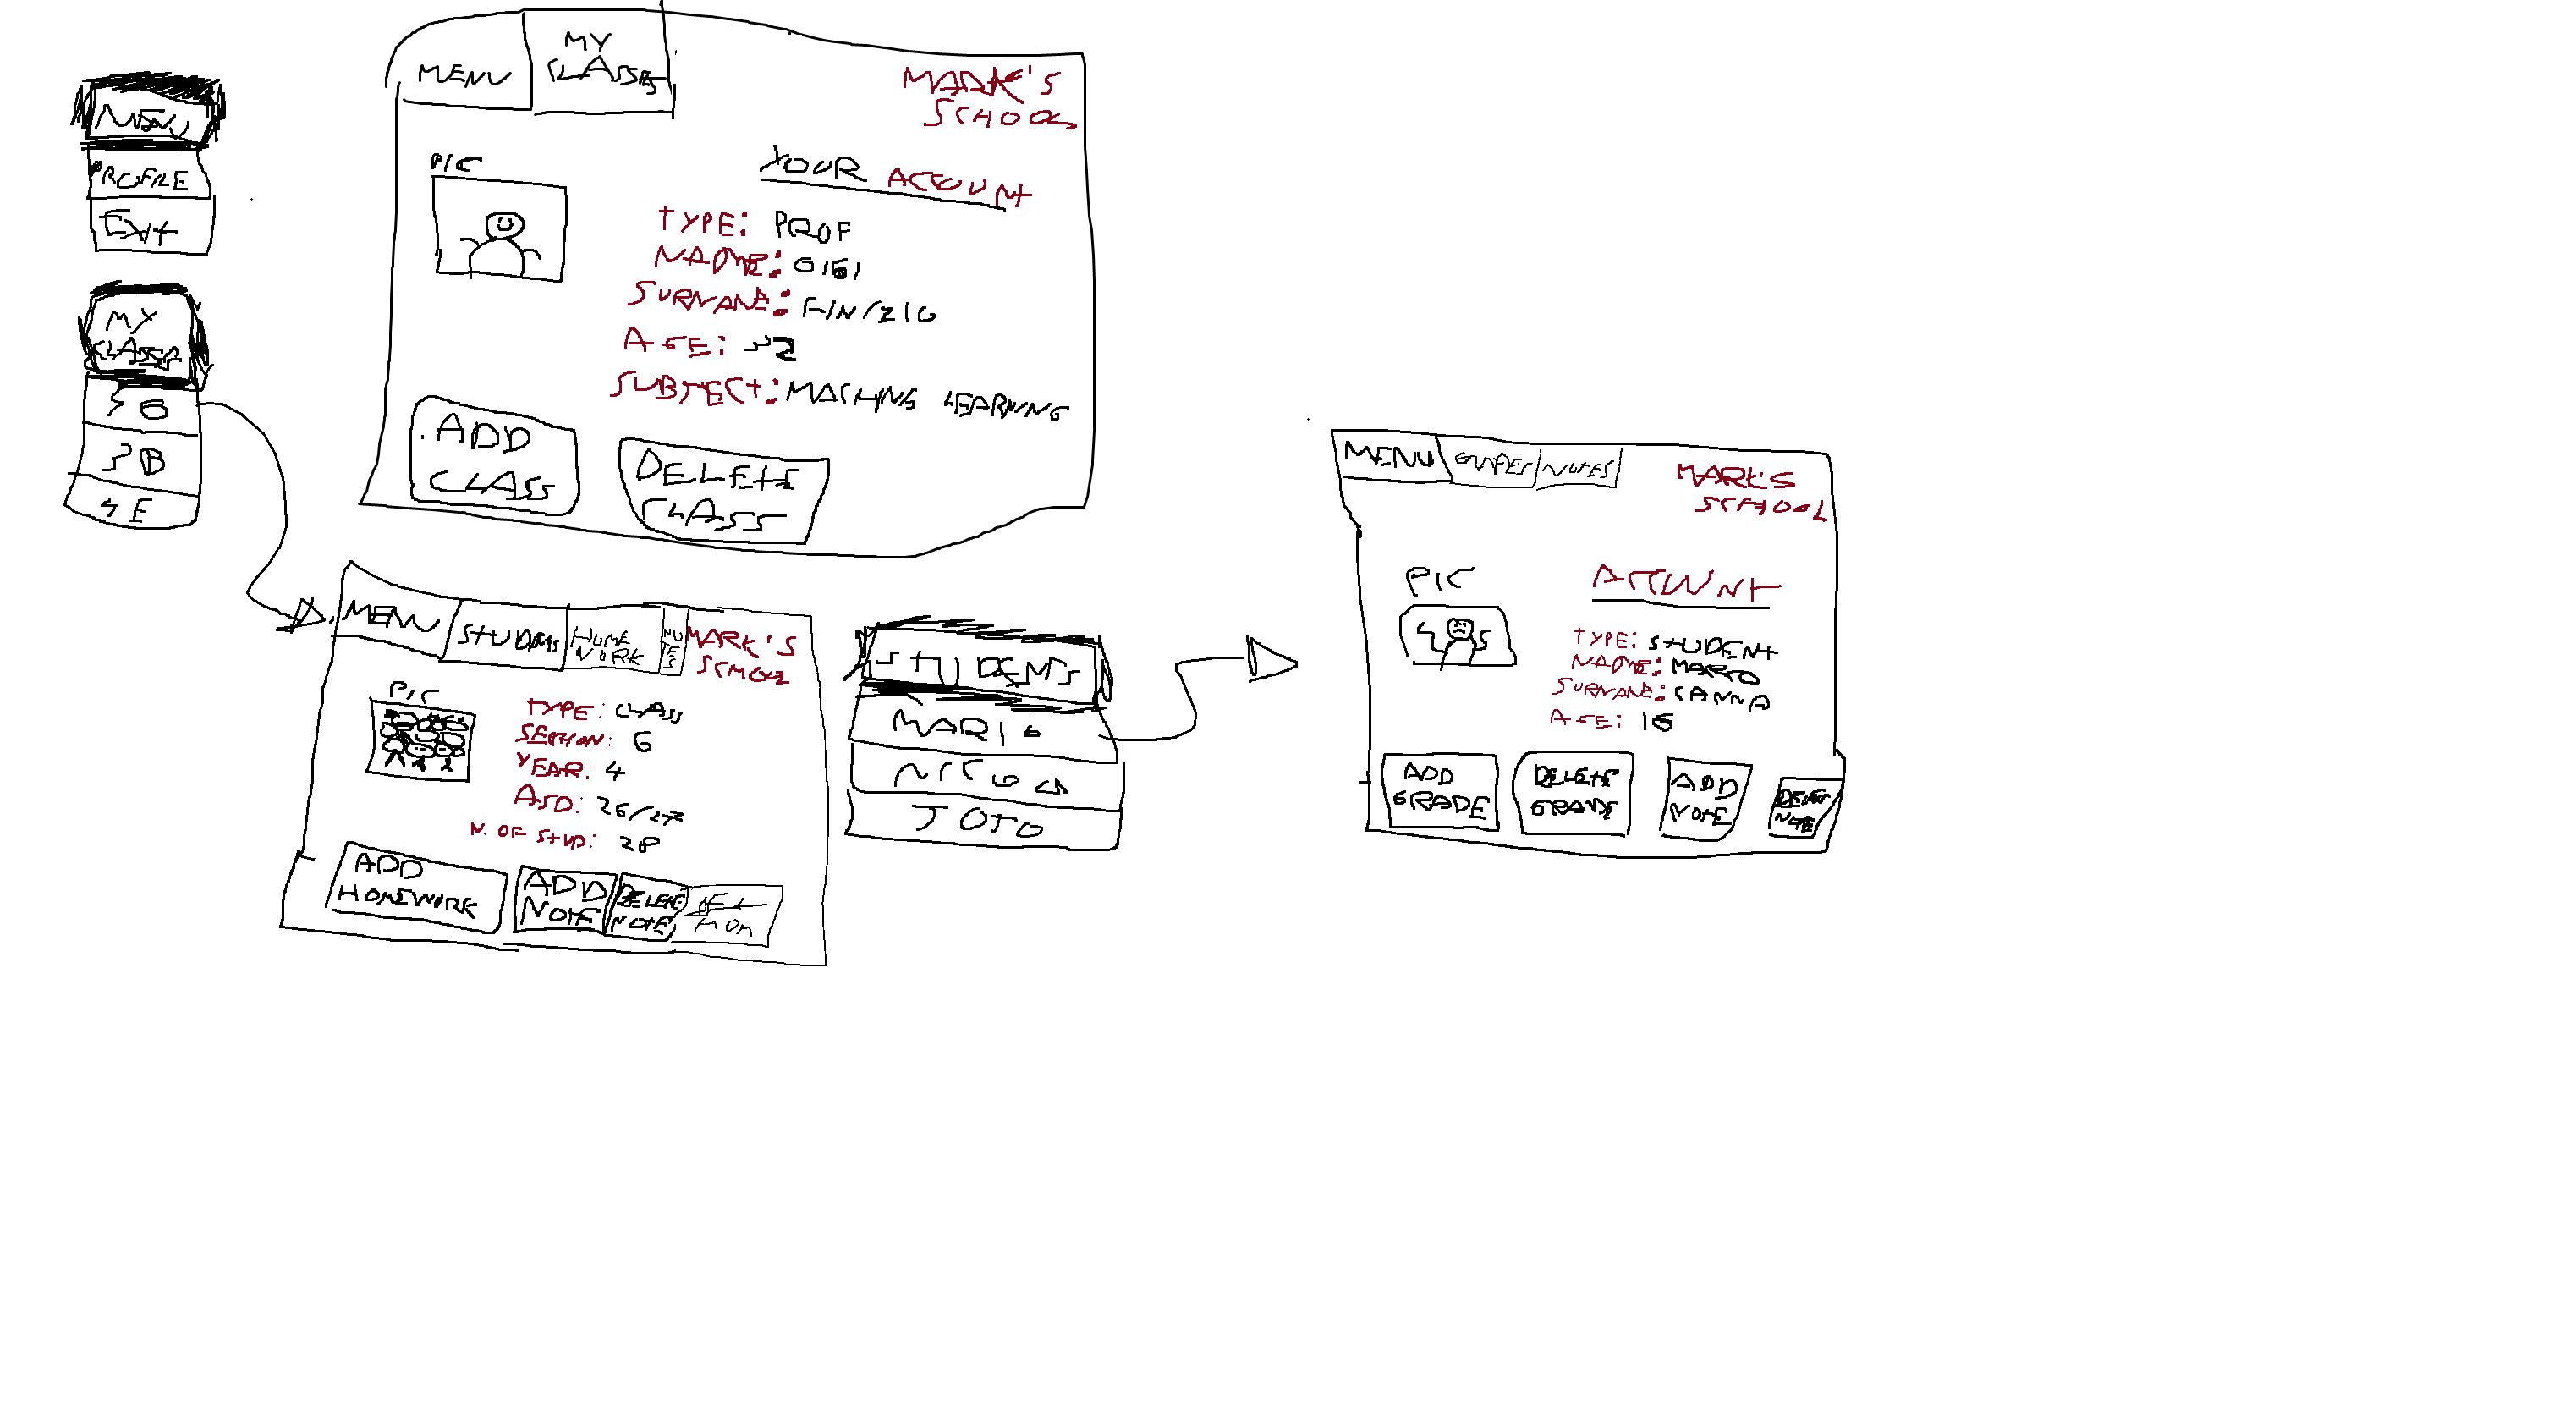 MENU
PROFILE
EXIT
MY
CLASSES
5G
3B
4E
MENU
MY
CLASSES
MARK'S
SCHOOL
PIC
YOUR ACCOUNT
TYPE: PROF
NAME: GIGI
SURNAME:
AGE:
SUBJECT: MACHING LEARNING
ADD
CLASS
DELETE
CLASS
MENU
STUDENTS
HOME
WORK
NOTES
MARK'S
SCHOOL
PIC
TYPE: CLASS
SECTION: G
YEAR: 4
ASD: 26/27
N. OF STUD: 28
ADD
HOMEWORK
ADD
NOTE
DELETE
NOTE
DEL
HOM
STUDENTS
MARIO
NICOLA
JOJO
MENU
GRADES
NOTES
MARK'S
SCHOOL
PIC
ACCOUNT
TYPE: STUDENT
NAME: MARCO
SURNAME: SANNA
AGE: 16
ADD
GRADE
DELETE
GRADE
ADD
NOTE
DELETE
NOTE